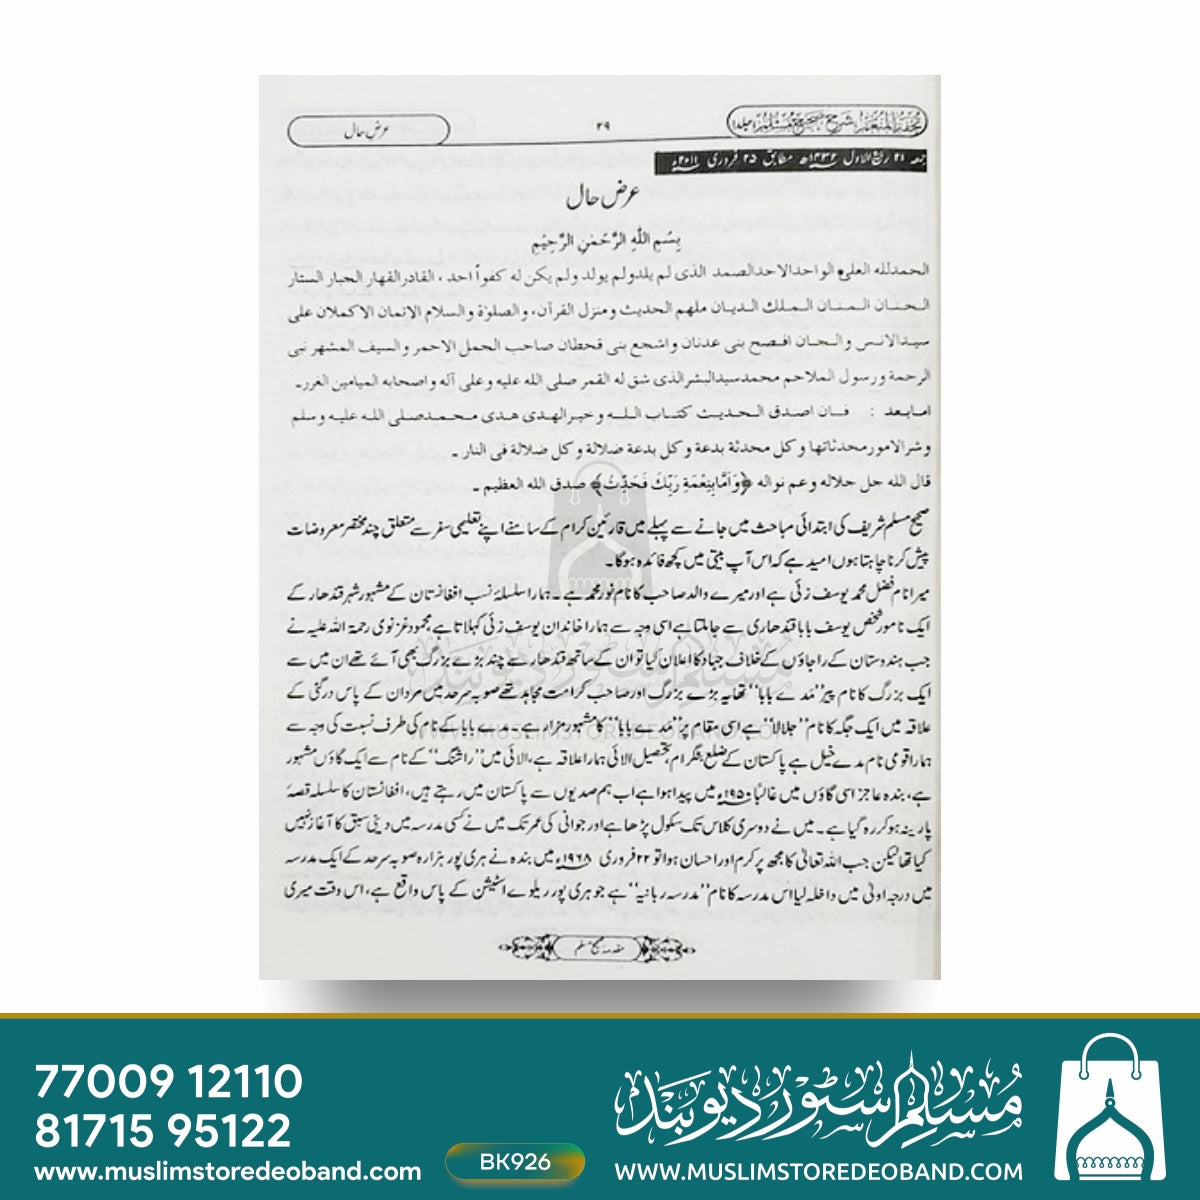 تحفۃ المنعم شرح صحیح مسلم (جلد ۱)
۲۹
عرض حال
جمعہ ۲۱ ربیع الاول ۱۴۳۲ھ مطابق ۲۵ فروری ۲۰۱۱ء
عرض حال
بِسْمِ اللهِ الرَّحْمٰنِ الرَّحِيْمِ
الحمدلله العلي الواحد الاحد الصمد الذی لم یلد ولم یولد ولم یکن له کفواً احد، القادر القهار الجبار الستار
الحنان المنان الملك الدیان ملهم الحدیث ومنزل القرآن، والصلوٰة والسلام الاتمان الاکملان علی
سید الانس والجان افصح بنی عدنان واشجع بنی قحطان صاحب الجمل الاحمر والسیف المشهر نبی
الرحمة ورسول الملاحم محمد سید البشر الذی شق له القمر صلی الله علیه وعلی آله واصحابه المیامین الغرر۔
امابعد : فان اصدق الحدیث کتاب الله وخیر الهدی هدی محمد صلی الله علیه وسلم
وشر الامور محدثاتها وکل محدثة بدعة وکل بدعة ضلالة وکل ضلالة فی النار ۔
قال الله جل جلاله وعم نواله ﴿وَاَمَّا بِنِعْمَةِ رَبِّكَ فَحَدِّثْ﴾ صدق الله العظیم ۔
صحیح مسلم شریف کی ابتدائی مباحث میں جانے سے پہلے میں قارئین کرام کے سامنے اپنے تعلیمی سفر سے متعلق چند مختصر معروضات
پیش کرنا چاہتا ہوں امید ہے کہ اس آپ بیتی میں کچھ فائدہ ہوگا۔
میرا نام فضل محمد یوسف زئی ہے اور میرے والد صاحب کا نام نور محمد ہے۔ ہمارا سلسلۂ نسب افغانستان کے مشہور شہر قندھار کے
ایک نامور شخص یوسف بابا قندھاری سے جا ملتا ہے اسی وجہ سے ہمارا خاندان یوسف زئی کہلاتا ہے، محمود غزنوی رحمۃ اللہ علیہ نے
جب ہندوستان کے راجاؤں کے خلاف جہاد کا اعلان کیا تو ان کے ساتھ قندھار سے چند بڑے بزرگ بھی آئے تھے ان میں سے
ایک بزرگ کا نام پیر "مدے بابا" تھا یہ بڑے بزرگ اور صاحب کرامت مجاہد تھے صوبہ سرحد میں مردان کے پاس درگئی کے
علاقہ میں ایک جگہ کا نام "جلالا" ہے اسی مقام پر "مدے بابا" کا مشہور مزار ہے۔ مدے بابا کے نام کی طرف نسبت کی وجہ سے
ہمارا قومی نام مدے خیل ہے پاکستان کے ضلع بٹگرام، تحصیل الائی ہمارا علاقہ ہے، الائی میں "راشنگ" کے نام سے ایک گاؤں مشہور
ہے، بندہ عاجز اسی گاؤں میں غالباً ۱۹۵۰ء میں پیدا ہوا ہے اب ہم صدیوں سے پاکستان میں رہتے ہیں، افغانستان کا سلسلہ قصۂ
پارینہ ہو کر رہ گیا ہے۔ میں نے دوسری کلاس تک سکول پڑھا ہے اور جوانی کی عمر تک میں نے کسی مدرسہ میں دینی سبق کا آغاز نہیں
کیا تھا لیکن جب اللہ تعالیٰ کا مجھ پر کرم اور احسان ہوا تو ۲۲ فروری ۱۹۶۸ء میں بندہ نے ہری پور ہزارہ صوبہ سرحد کے ایک مدرسہ
میں درجہ اولیٰ میں داخلہ لیا اس مدرسہ کا نام "مدرسہ ربانیہ" ہے جو ہری پور ریلوے اسٹیشن کے پاس واقع ہے، اس وقت میری
مقدمہ صحیح مسلم
مسلم سٹور دیوبند
WWW.MUSLIMSTOREDEOBAND.COM
77009 12110
81715 95122
www.muslimstoredeoband.com
BK926
مسلم سٹور دیوبند
WWW.MUSLIMSTOREDEOBAND.COM